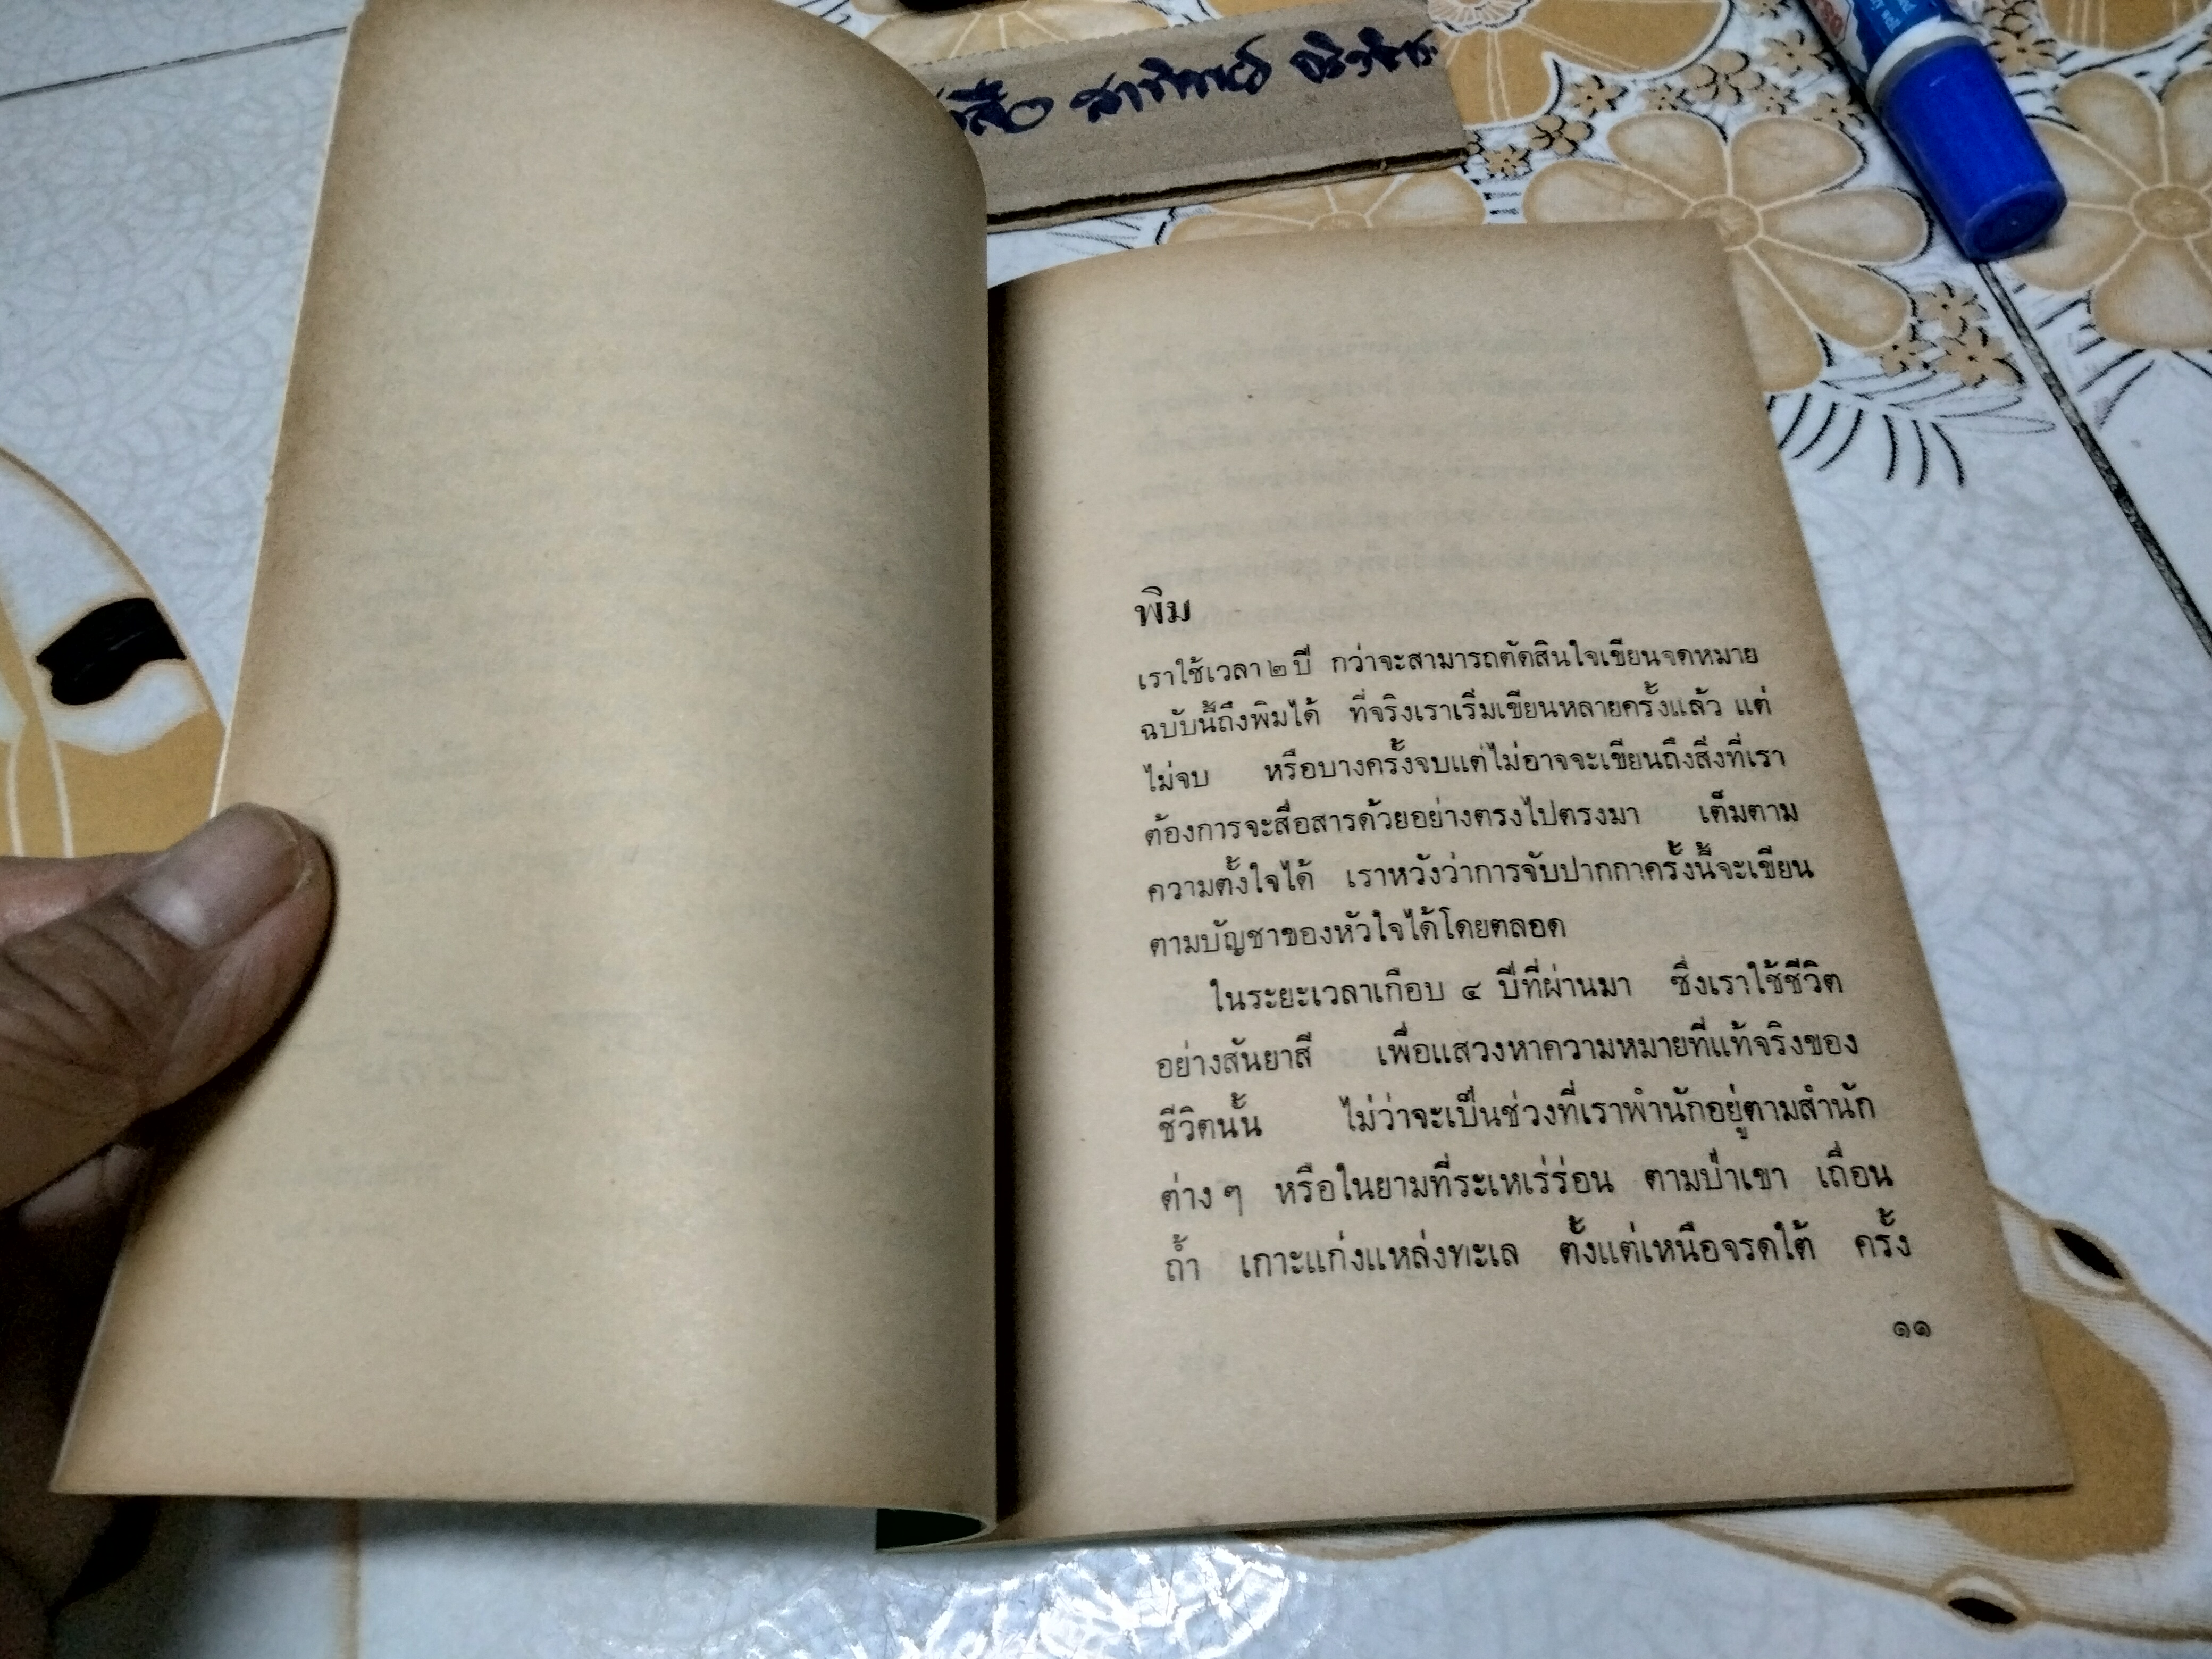 พิม
เราใช้เวลา ๒ ปี กว่าจะสามารถตัดสินใจเขียนจดหมาย
ฉบับนี้ถึงพิมได้ ที่จริงเราเริ่มเขียนหลายครั้งแล้ว แต่
ไม่จบ หรือบางครั้งจบแต่ไม่อาจจะเขียนถึงสิ่งที่เรา
ต้องการจะสื่อสารด้วยอย่างตรงไปตรงมา เต็มตาม
ความตั้งใจได้ เราหวังว่าการจับปากกาครั้งนี้จะเขียน
ตามบัญชาของหัวใจได้โดยตลอด
ในระยะเวลาเกือบ ๔ ปีที่ผ่านมา ซึ่งเราใช้ชีวิต
อย่างสันยาสี เพื่อแสวงหาความหมายที่แท้จริงของ
ชีวิตนั้น ไม่ว่าจะเป็นช่วงที่เราพำนักอยู่ตามสำนัก
ต่าง ๆ หรือในยามที่ระเหเร่ร่อน ตามป่าเขา เถื่อน
ถ้ำ เกาะแก่งแหล่งทะเล ตั้งแต่เหนือจรดใต้ ครั้ง
๑๑